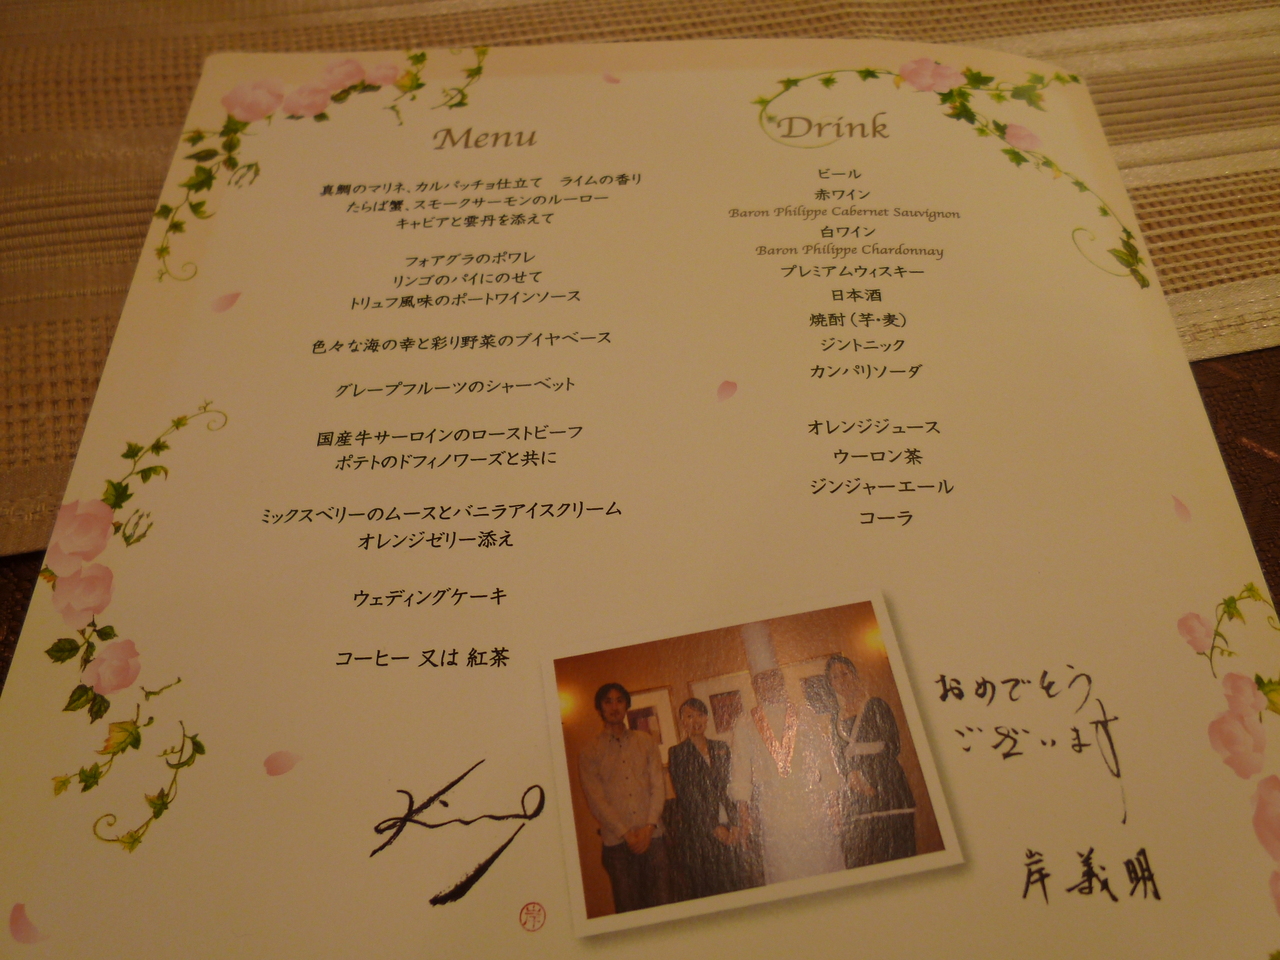 Menu
真鯛のマリネ、カルパッチョ仕立て　ライムの香り
たらば蟹、スモークサーモンのルーロー
キャビアと雲丹を添えて
フォアグラのポワレ
リンゴのパイにのせて
トリュフ風味のポートワインソース
色々な海の幸と彩り野菜のブイヤベース
グレープフルーツのシャーベット
国産牛サーロインのローストビーフ
ポテトのドフィノワーズと共に
ミックスベリーのムースとバニラアイスクリーム
オレンジゼリー添え
ウェディングケーキ
コーヒー 又は 紅茶
Drink
ビール
赤ワイン
Baron Philippe Cabernet Sauvignon
白ワイン
Baron Philippe Chardonnay
プレミアムウィスキー
日本酒
焼酎（芋・麦）
ジントニック
カンパリソーダ
オレンジジュース
ウーロン茶
ジンジャーエール
コーラ
おめでとう
ございます
岸義明
岸